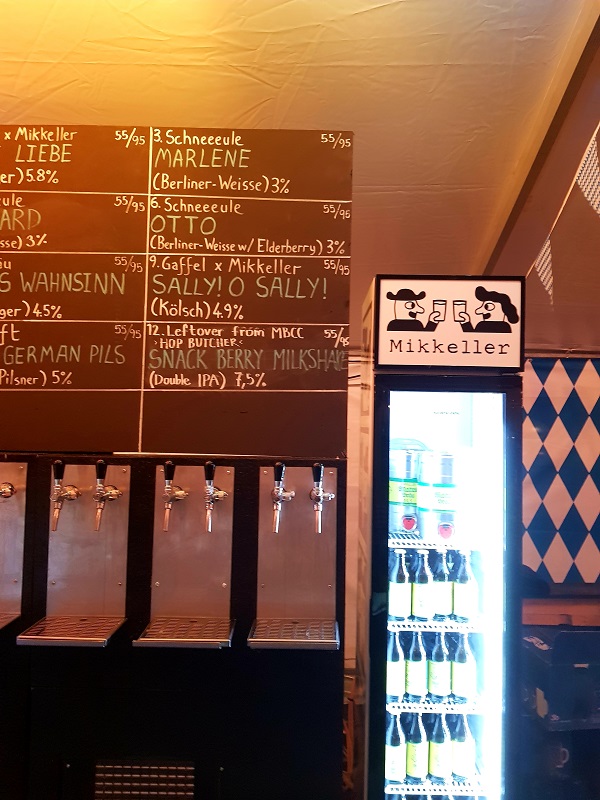 x Mikkeller 55/95
LIEBE
er) 5.8%
ule 55/95
ARD
sse) 3%
äu 55/95
G WAHNSINN
ger) 4.5%
ft 55/95
GERMAN PILS
Pilsner) 5%
3. Schneeeule 55/95
MARLENE
(Berliner-Weisse) 3%
6. Schneeeule 55/95
OTTO
(Berliner-Weisse w/ Elderberry) 3%
9. Gaffel x Mikkeller 55/95
SALLY! O SALLY!
(Kölsch) 4.9%
12. Leftover from MBCC 55/95
>HOP BUTCHER<
SNACK BERRY MILKSHAKE
(Double IPA) 7,5%
Mikkeller